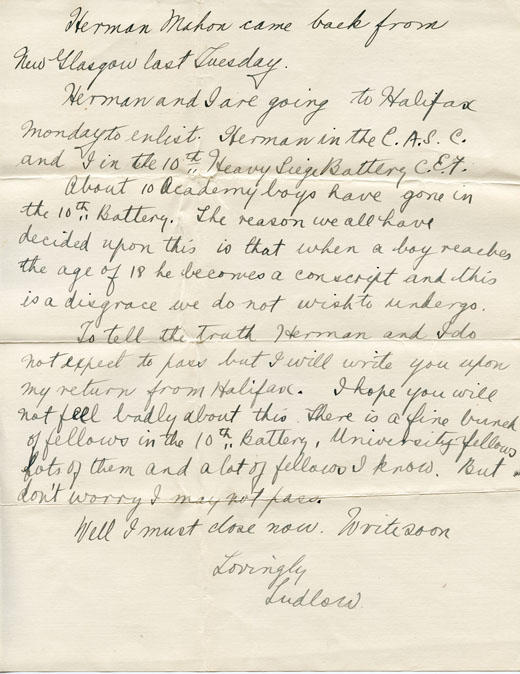 Herman Mahon came back from
New Glasgow last Tuesday.
Herman and I are going to Halifax
Monday to enlist. Herman in the C.A.S.C.
and I in the 10th Heavy Siege Battery C.E.F.
About 10 Academy boys have gone in
the 10th Battery. The reason we all have
decided upon this is that when a boy reaches
the age of 18 he becomes a conscript and this
is a disgrace we do not wish to undergo.
To tell the truth Herman and I do
not expect to pass but I will write you upon
my return from Halifax. I hope you will
not feel badly about this. There is a fine bunch
of fellows in the 10th Battery, University fellows
lots of them and a lot of fellows I know. But
don't worry I may not pass.
Well I must close now. Write soon
Lovingly
Ludlow.